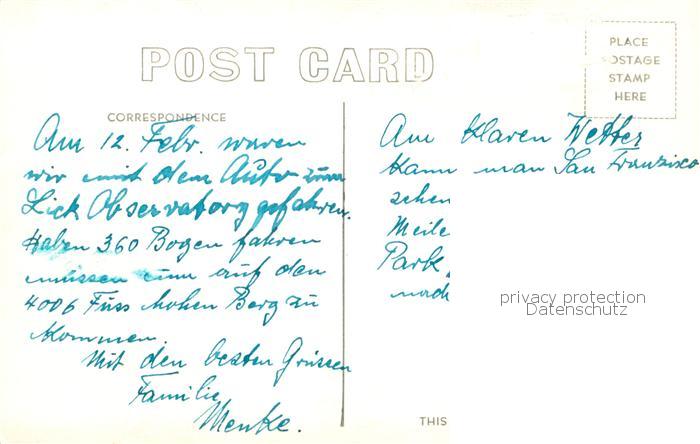 POST CARD
PLACE
POSTAGE
STAMP
HERE
CORRESPONDENCE
Am 12. Febr. waren
wir mit dem Auto zum
Lick Observatory gefahren.
Haben 360 Bogen fahren
müssen um auf den
4006 Fuss hohen Berg zu
kommen.
Mit den besten Grüssen
Familie
Menke.
Am klaren Wetter
kann man San Franzisco
sehen
Meile
Park,
nach
privacy protection
Datenschutz
THIS